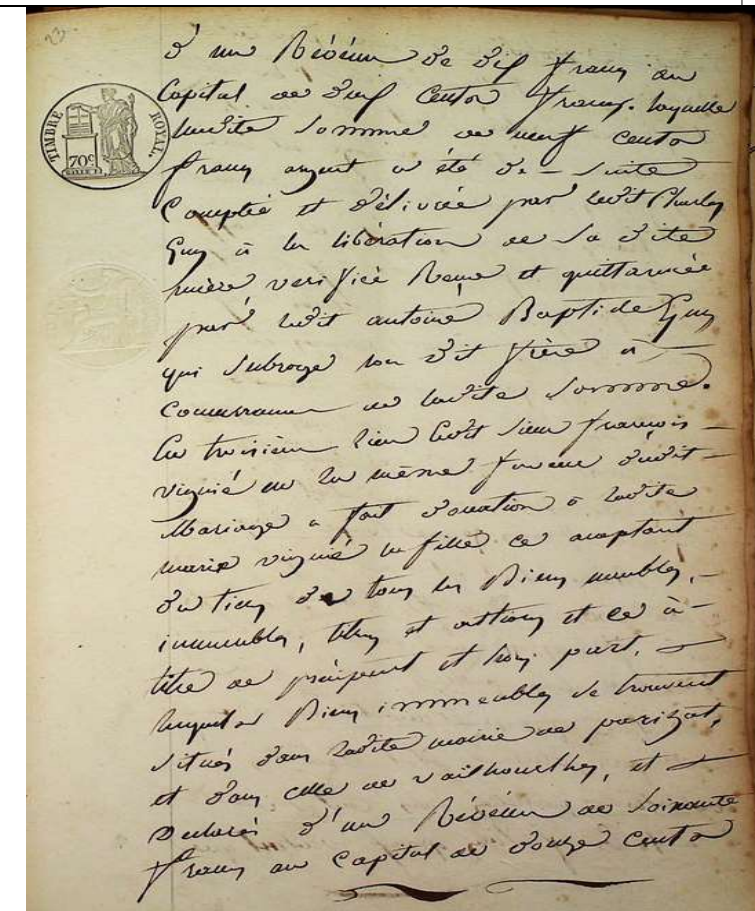 23
TIMBRE ROYAL.
70c
d'un Révénu de dix francs au
Capital de deux Centos francs. laquelle
laudite somme de neuf cents
francs argent a été de - suite
Comptée et délivrée par ledit Charles
Guy à la libération de sa dite
mère verifiée Reçue et quittancée
par ledit antoine Baptiste Guy
qui subroge son dit frère à
Concurrance de ladite somme.
En troisième lieu ledit sieur françois -
vignié en la même faveur dudit -
Mariage a fait donation à ladite
marie vignié sa fille ce acceptant
du tiers de tous les Biens meubles, -
immeubles, titres et actions et ce à -
titre de préciput et hors part, -
lesquels Biens immeubles se trouvent
situés dans ladite mairie de parizot,
et dans celle de vailhourlhes, et
Déclarés d'un Révénu de soixante
francs au Capital de douze Cents